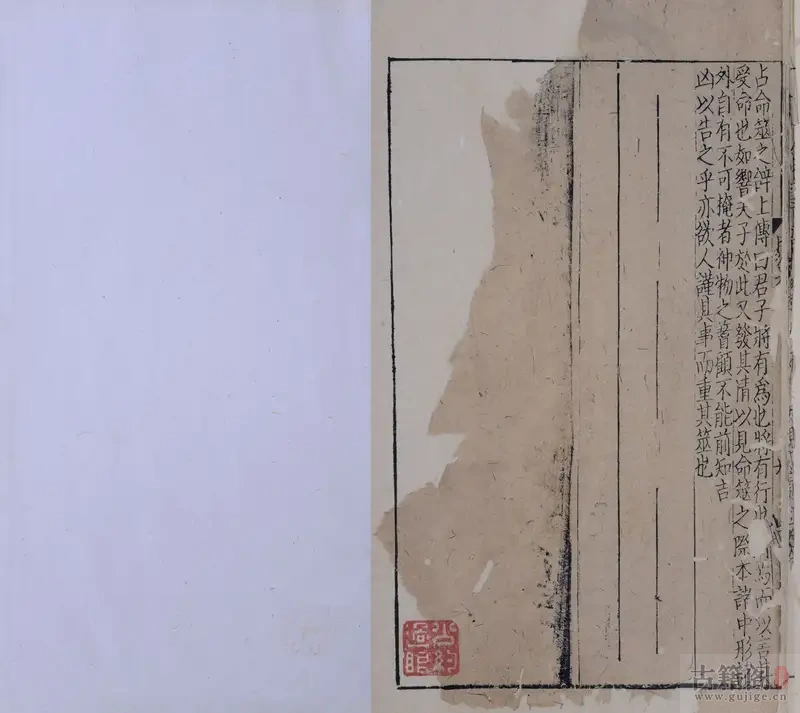 占命筮之辭上傳曰君子將有爲也將有行也爲而以言其
受命也如響夫子於此又發其情以見命筮之際本諸中形
外自有不可掩者神物之蓍顧不能前知吉
凶以告之乎亦欲人謹其事而重其筮也
過眼
古籍阁
www.gujige.cn